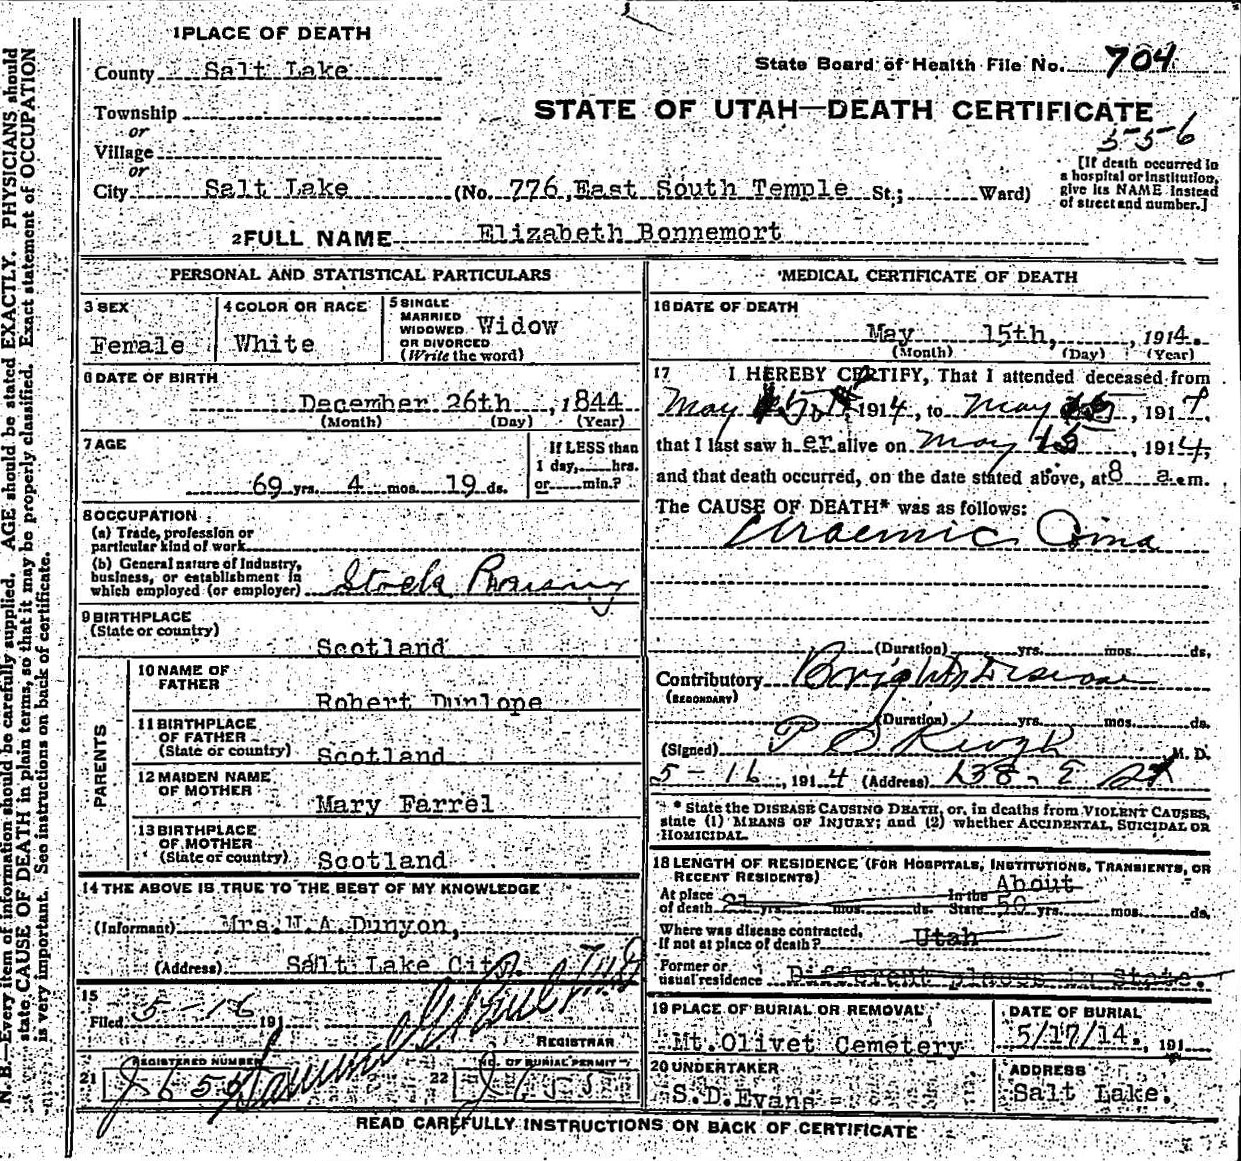 1 PLACE OF DEATH
County Salt Lake
State Board of Health File No. 704
Township
or
Village
or
STATE OF UTAH—DEATH CERTIFICATE
556
City Salt Lake (No. 776, East South Temple St.; Ward)
[If death occurred in
a hospital or institution,
give its NAME instead
of street and number.]
2 FULL NAME Elizabeth Bonnemort
PERSONAL AND STATISTICAL PARTICULARS
3 SEX
Female
4 COLOR OR RACE
White
5 SINGLE
MARRIED
WIDOWED
OR DIVORCED
(Write the word)
Widow
6 DATE OF BIRTH
December 26th, 1844
(Month) (Day) (Year)
7 AGE
69 yrs. 4 mos. 19 ds.
If LESS than
1 day, hrs.
or min.?
8 OCCUPATION
(a) Trade, profession or
particular kind of work
(b) General nature of Industry,
business, or establishment in
which employed (or employer) Stock Raising
9 BIRTHPLACE
(State or country)
Scotland
PARENTS
10 NAME OF
FATHER
Robert Dunlope
11 BIRTHPLACE
OF FATHER
(State or country) Scotland
12 MAIDEN NAME
OF MOTHER
Mary Farrel
13 BIRTHPLACE
OF MOTHER
(State or country) Scotland
14 THE ABOVE IS TRUE TO THE BEST OF MY KNOWLEDGE
(Informant) Mrs. W.A. Dunyon,
(Address) Salt Lake City.
15
Filed 5-16 191
REGISTRAR
REGISTERED NUMBER
21
OF BURIAL PERMIT
22
MEDICAL CERTIFICATE OF DEATH
16 DATE OF DEATH
May 15th, , 1914.
(Month) (Day) (Year)
17 I HEREBY CERTIFY, That I attended deceased from
May 15 1914, to May 15, 191
that I last saw h er alive on May 15, 1914,
and that death occurred, on the date stated above, at 8 a. m.
The CAUSE OF DEATH* was as follows:
Uraemic Coma
(Duration) yrs. mos. ds.
Contributory Brights Disease
(SECONDARY)
(Duration) yrs. mos. ds.
(Signed) P S Keogh M. D.
5-16, 1914 (Address) 138 E
* State the DISEASE CAUSING DEATH, or, in deaths from VIOLENT CAUSES,
state (1) MEANS OF INJURY; and (2) whether ACCIDENTAL, SUICIDAL OR
HOMICIDAL.
18 LENGTH OF RESIDENCE (FOR HOSPITALS, INSTITUTIONS, TRANSIENTS, OR
RECENT RESIDENTS)
At place
of death 21 yrs. mos. ds.
In the
State About 50 yrs. mos. ds.
Where was disease contracted,
If not at place of death? Utah
Former or
usual residence Different places in State.
19 PLACE OF BURIAL OR REMOVAL
Mt. Olivet Cemetery
DATE OF BURIAL
5/17/14. , 191
20 UNDERTAKER
S.D. Evans
ADDRESS
Salt Lake.
READ CAREFULLY INSTRUCTIONS ON BACK OF CERTIFICATE
N. B.—Every item of information should be carefully supplied. AGE should be stated EXACTLY. PHYSICIANS should
state CAUSE OF DEATH in plain terms, so that it may be properly classified. Exact statement of OCCUPATION
is very important. See instructions on back of certificate.